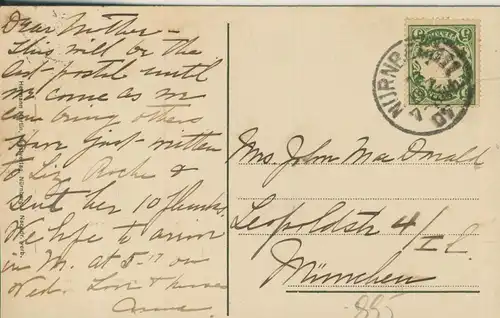 Dear Mother –
This will be the
last postal until
we come as we
can bring others
Have just written
to Liz Roche &
sent her 10
We hope to arrive
in M. at 5-17 on
Weds. Love & kisses
Mrs. John MacDonald
Leopoldstr 4/I l.
München
NÜRNB
5
885